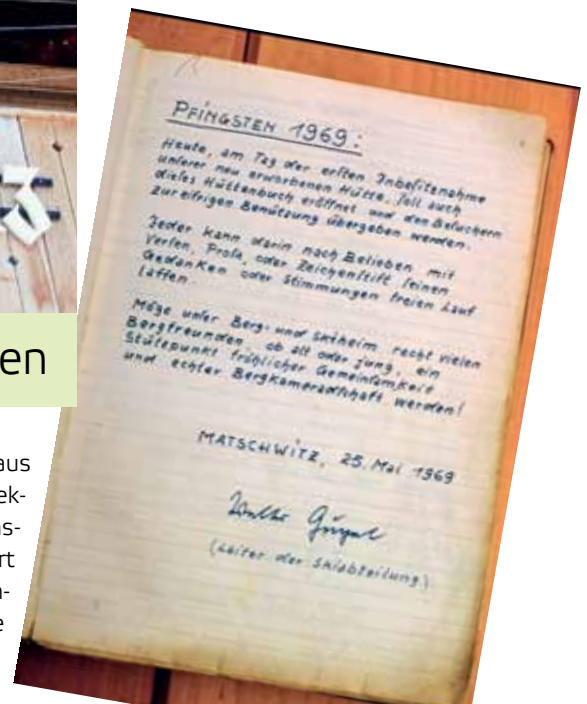 en
aus
ek-
s-
rt
n-
e
PFINGSTEN 1969:
Heute, am Tag der ersten Inbesitznahme
unserer neu erworbenen Hütte, soll auch
dieses Hüttenbuch eröffnet und den Besuchern
zur eifrigen Benützung übergeben werden.
Jeder kann darin nach Belieben mit
Versen, Prosa, oder Zeichenstift seinen
Gedanken oder Stimmungen freien Lauf
lassen.
Möge unser Berg- und Skiheim recht vielen
Bergfreunden, ob alt oder jung, ein
Stützpunkt fröhlicher Gemeinsamkeit
und echter Bergkameradschaft werden!
MATSCHWITZ, 25. Mai 1969
Walter
(Leiter der Skiabteilung)